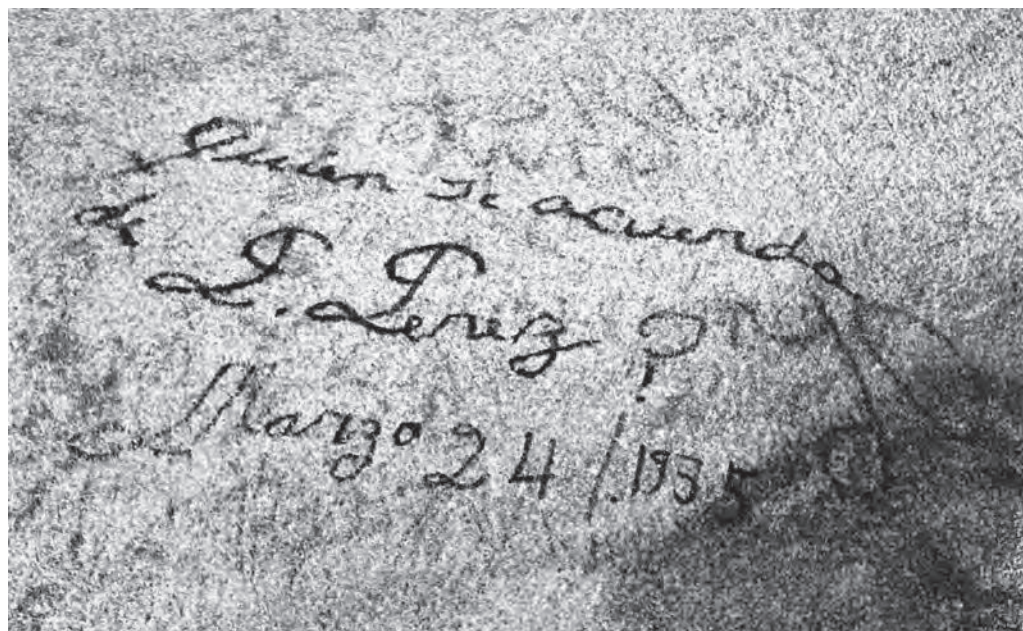 Quien se acuerda
de
P. Perez ?
Marzo 24/1935